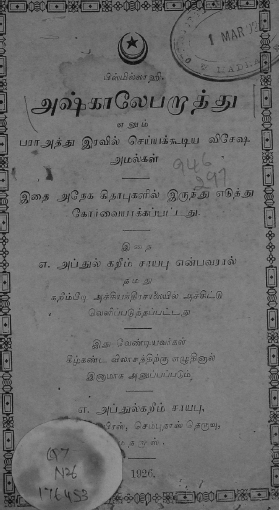 1 MAR 72
பிஸ்மில்லாஹி.
அஷ்காலேபறாத்து
எனும்
பராஅத்து இரவில் செய்யக்கூடிய விசேஷ
அமல்கள்
946
397
இதை அநேக கிதாபுகளில் இருந்து எடுத்து
கோர்வையாக்கப்பட்டது.
இதை
எ. அப்துல் கறீம் சாயபு என்பவரால்
தமது
கறீம்பிரே அச்சியந்திரசாலையில் அச்சிட்டு
வெளிப்படுத்தப்பட்டது
இது வேண்டியவர்கள்
கீழ்கண்ட விலாசத்திற்கு எழுதினால்
இனாமாக அனுப்பப்படும்.
எ. அப்துல்கறீம் சாயபு,
தெருவு,
1926.
Q7
N26
176453